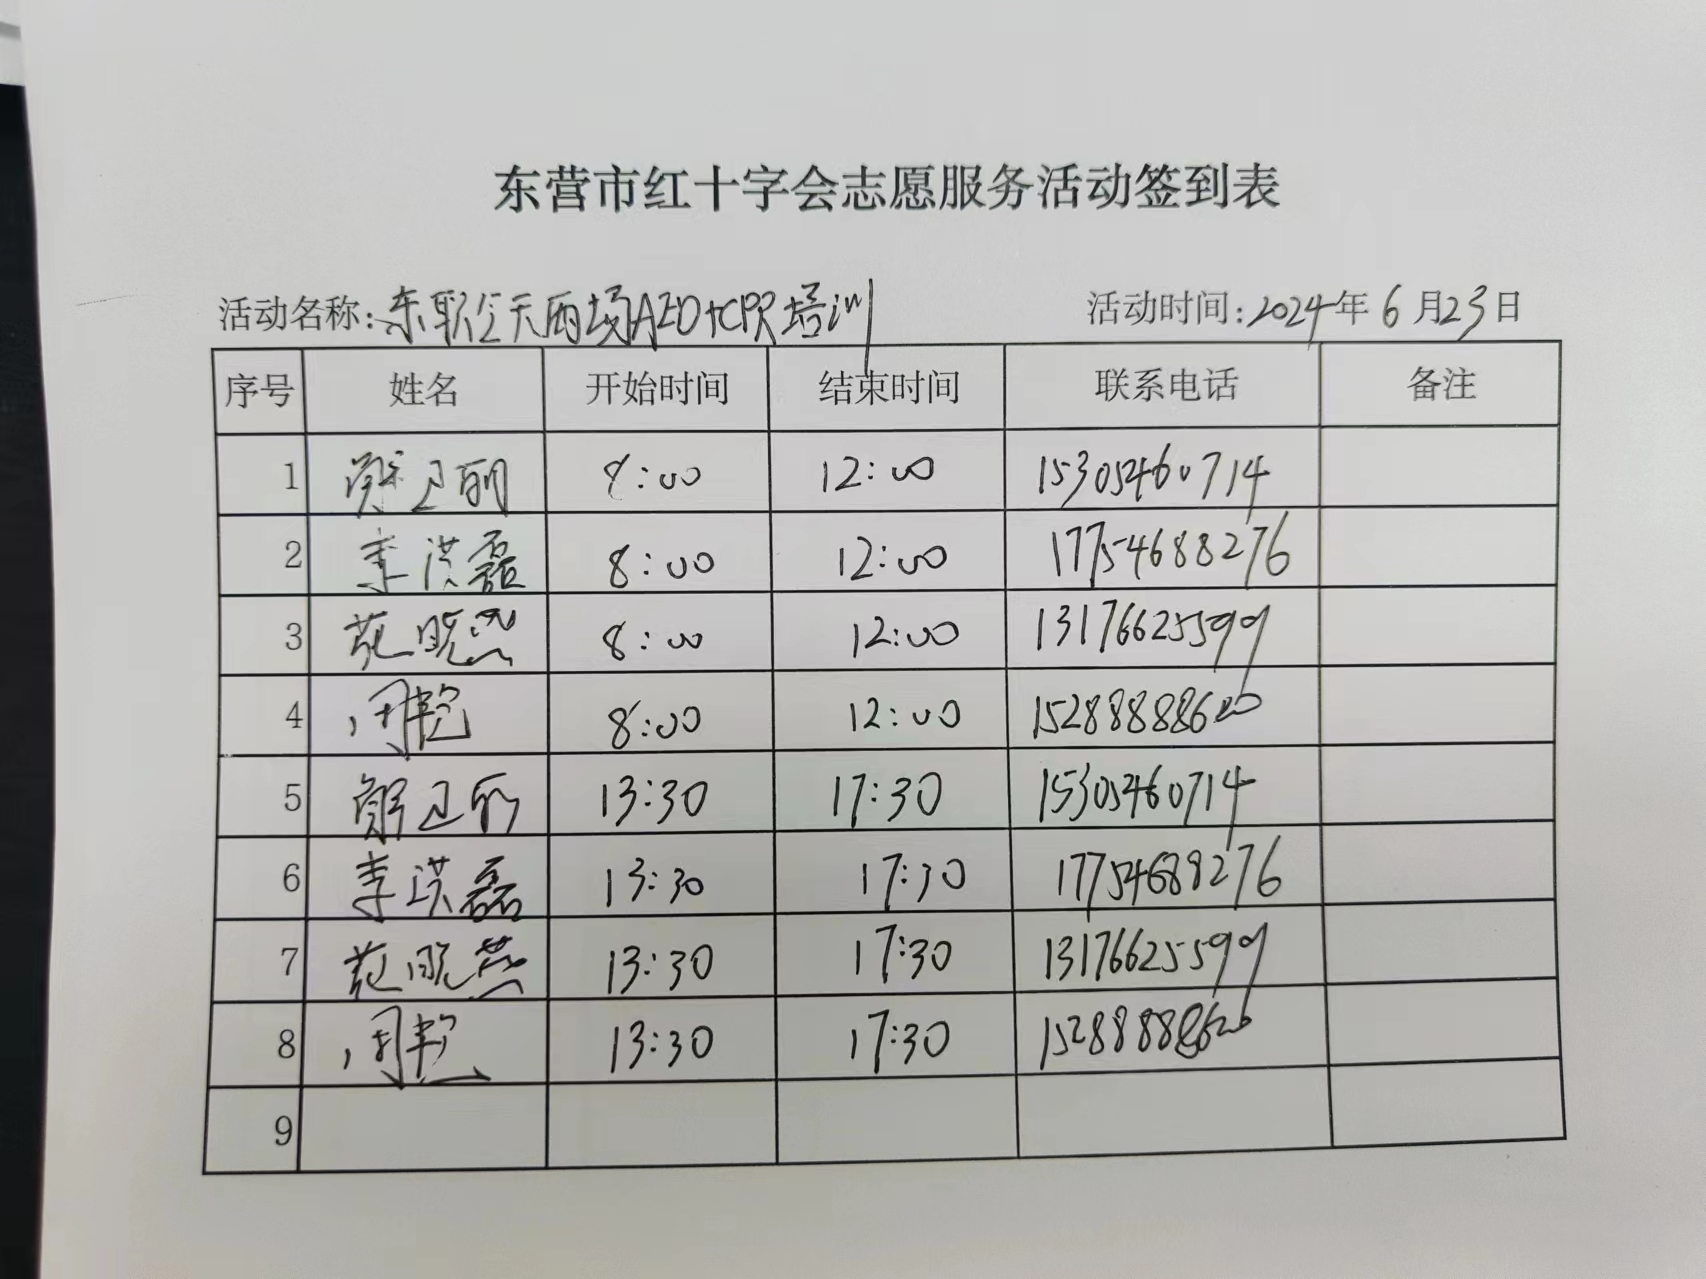 东营市红十字会志愿服务活动签到表
活动名称:东职全天两场AED+CPR培训 活动时间:2024年6月23日
序号 姓名 开始时间 结束时间 联系电话 备注
1 解卫丽 8:00 12:00 15305460714
2 李洪磊 8:00 12:00 17754688276
3 范晓燕 8:00 12:00 13176625599
4 周艳 8:00 12:00 15288888620
5 解卫丽 13:30 17:30 15305460714
6 李洪磊 13:30 17:30 17754688276
7 范晓燕 13:30 17:30 13176625599
8 周艳 13:30 17:30 15288888620
9